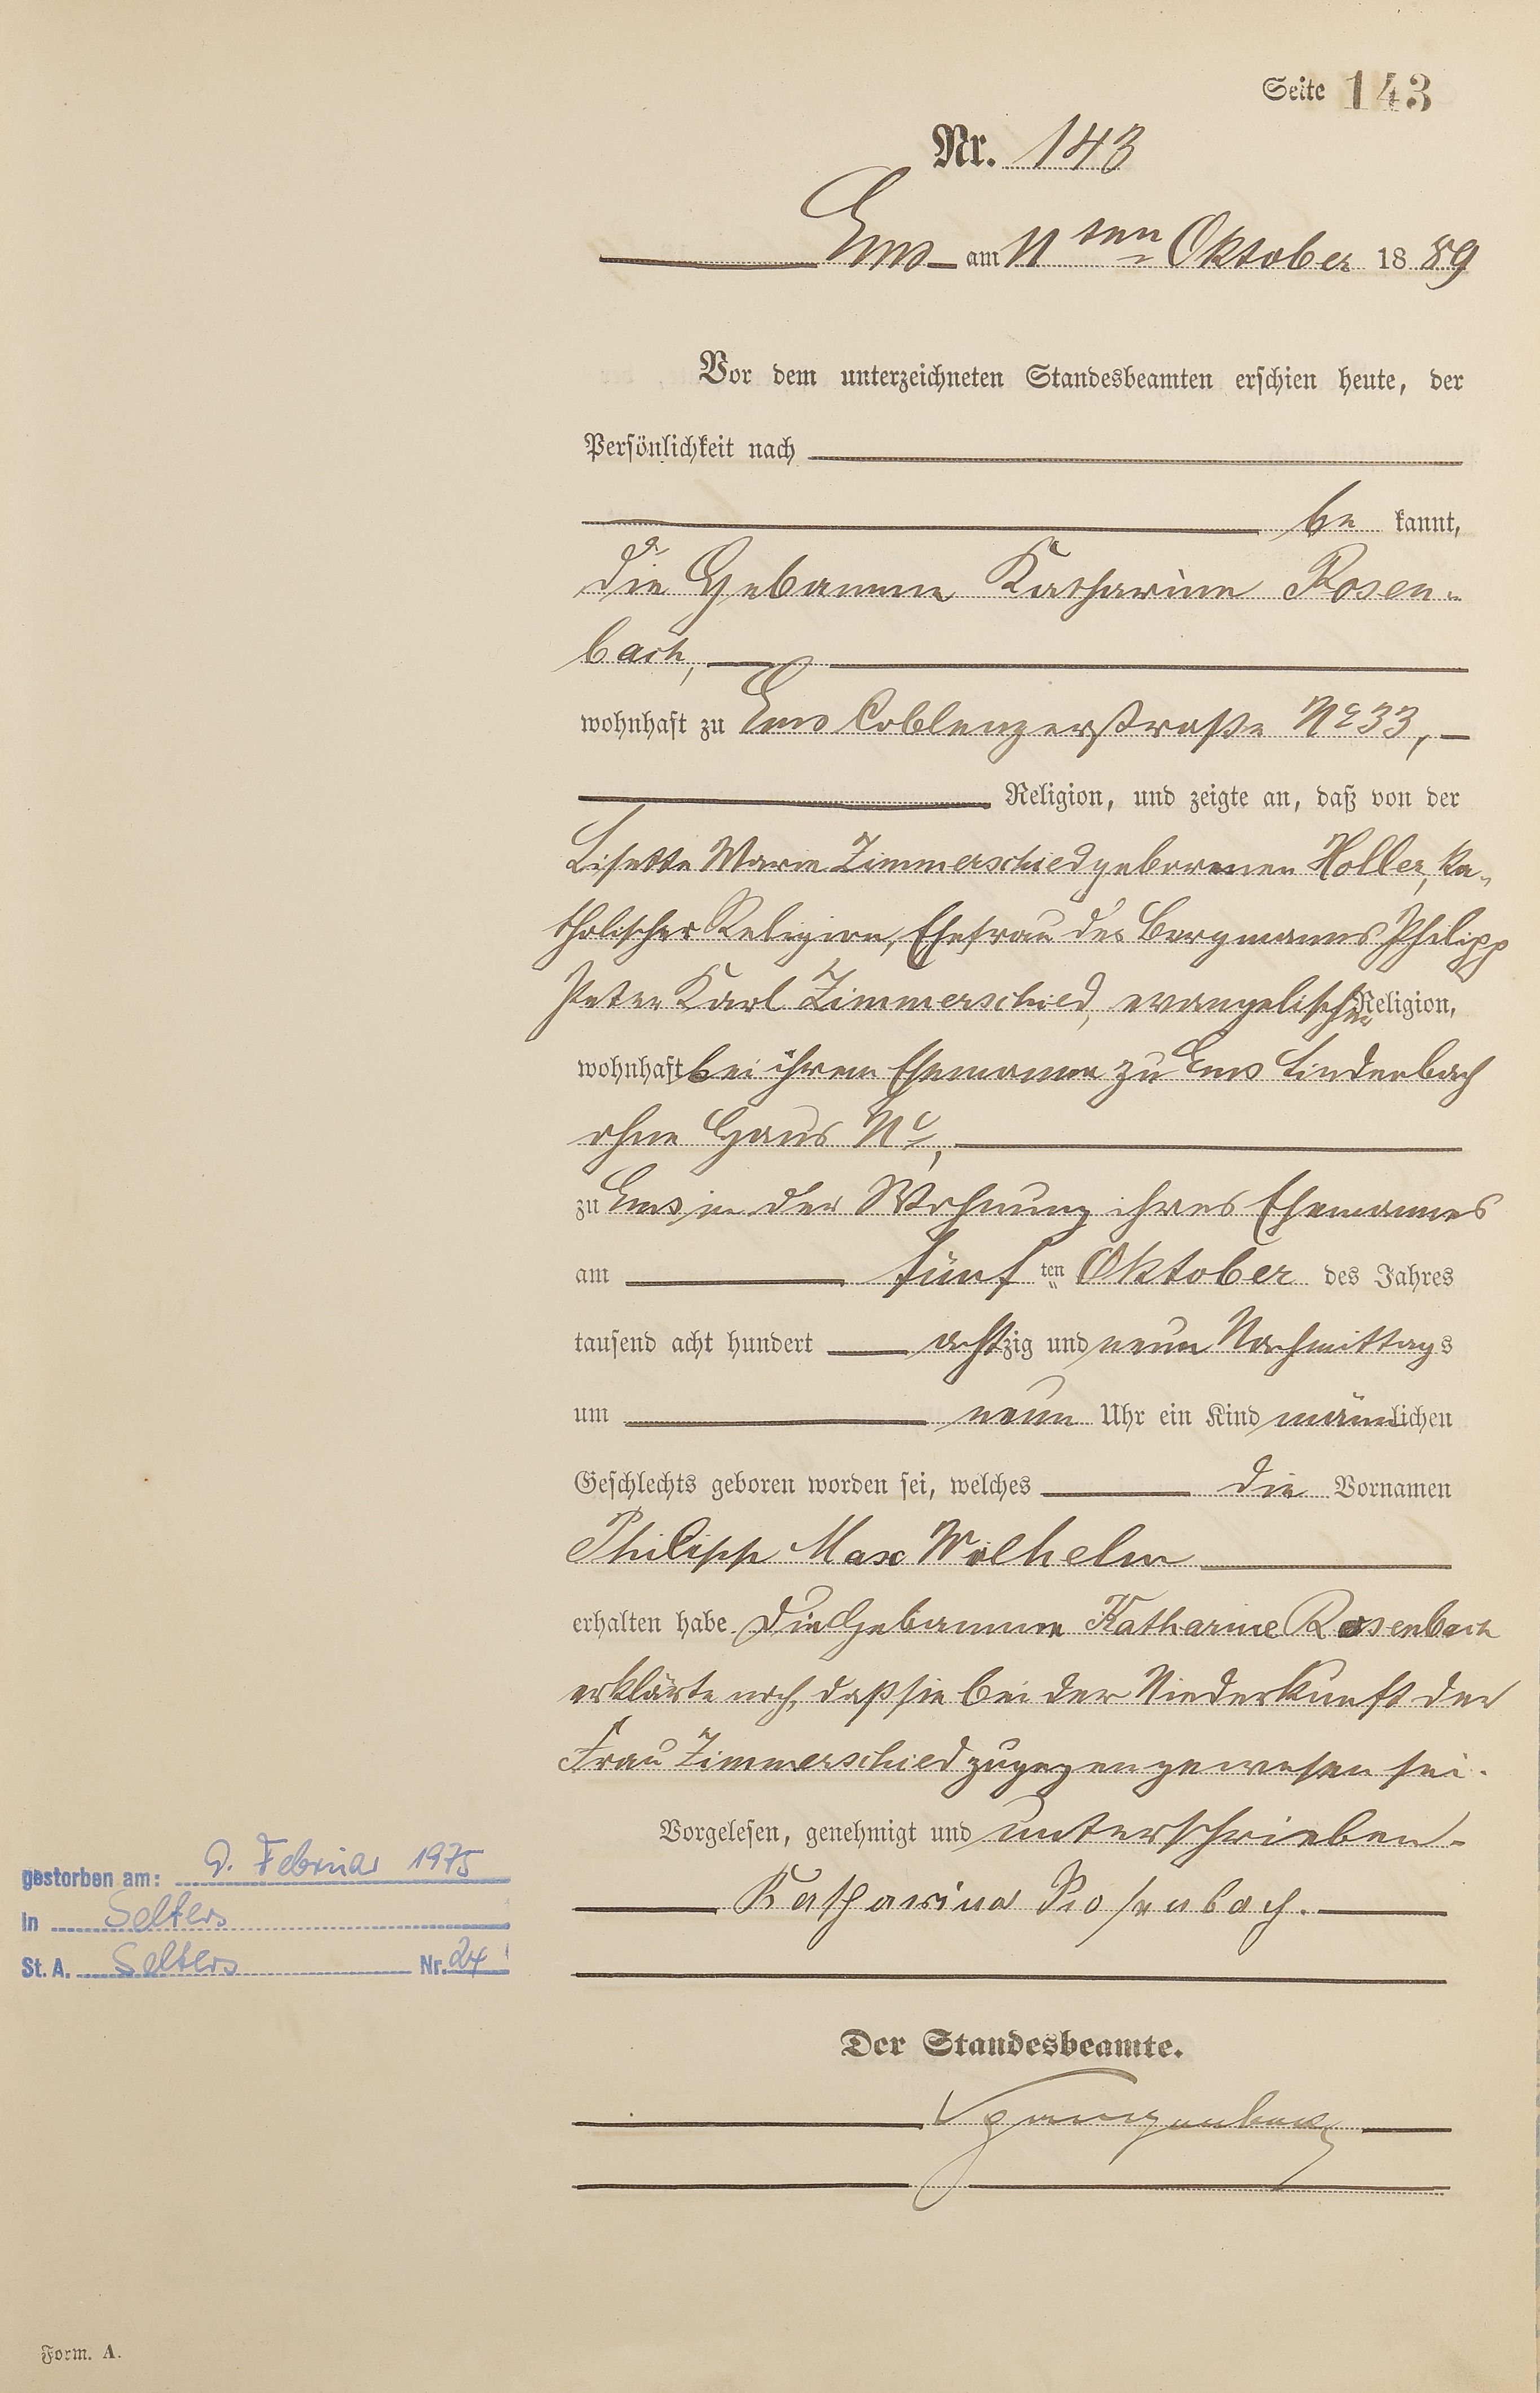 Seite 143
Nr. 143
Ems am 11ten Oktober 1889
Vor dem unterzeichneten Standesbeamten erschien heute, der
Persönlichkeit nach
be kannt,
die Hebamme Katharine Rosen-
bach,
wohnhaft zu Ems Coblenzerstraße No 33,
Religion, und zeigte an, daß von der
Lisette Marie Zimmerschied geborenen Holler, ka-
tholischer Religion, Ehefrau des Bergmanns Philipp
Peter Karl Zimmerschied, evangelischer Religion,
wohnhaft bei ihrem Ehemanne zu Ems Lindenbach
ohne Haus No,
zu Ems in der Wohnung ihres Ehemannes
am fünf ten Oktober des Jahres
tausend acht hundert achtzig und neun Nachmittags
um neun Uhr ein Kind männlichen
Geschlechts geboren worden sei, welches die Vornamen
Philipp Max Wilhelm
erhalten habe. Die Hebamme Katharine Rosenbach
erklärte noch, daß sie bei der Niederkunft der
Frau Zimmerschied zugegen gewesen sei.
Vorgelesen, genehmigt und unterschrieben.
Katharina Rosenbach.
Der Standesbeamte.
gestorben am: 9. Februar 1975
in Selters
St. A. Selters Nr. 24
Form. A.